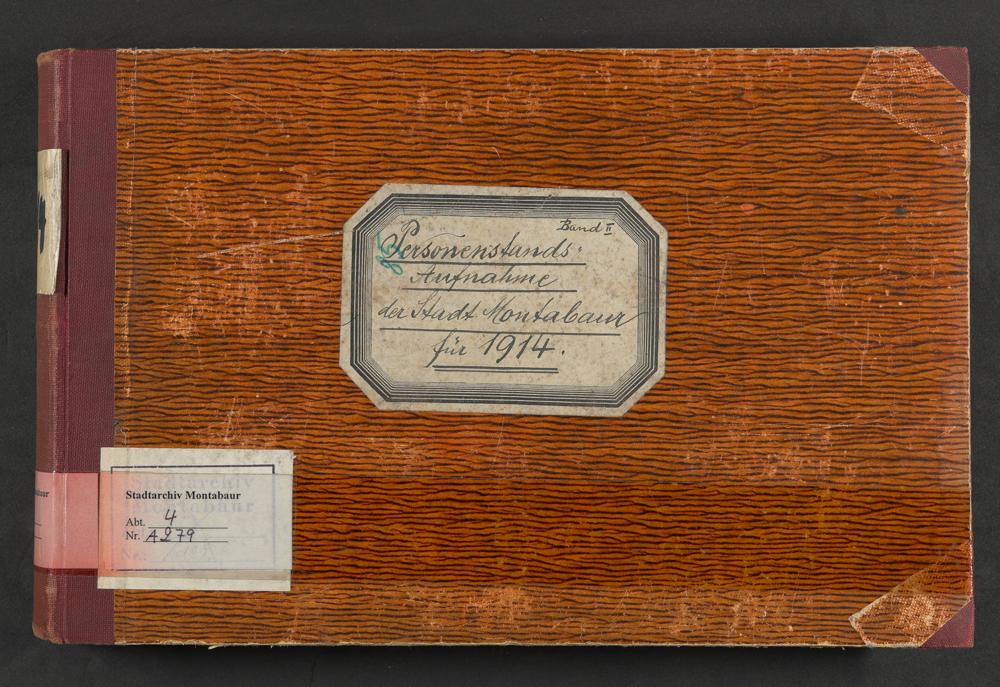 Band II
Personenstands-
Aufnahme
der Stadt Montabaur
für 1914.
Stadtarchiv Montabaur
Abt. 4
Nr. A 279